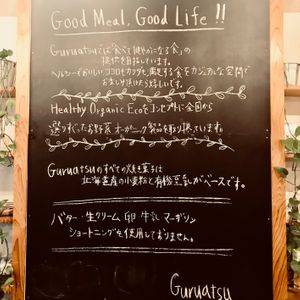 Good Meal, Good Life !!
Guruatsuでは「食べて健やかになる食」の
提供を目指しています。
ヘルシーでおいしい ココロもカラダも満足する食をカジュアルな空間で
お楽しみ頂けたら嬉しいです。
Healthy Organic Ecoをコンセプトに全国から
選りすぐったお野菜 オーガニック製品を取り扱ています。
Guruatsuのすべての焼き菓子は
北海道産の小麦粉と有機豆乳がベースです。
バター・生クリーム 卵 牛乳 マーガリン
ショートニングを使用しておりません。
Guruatsu